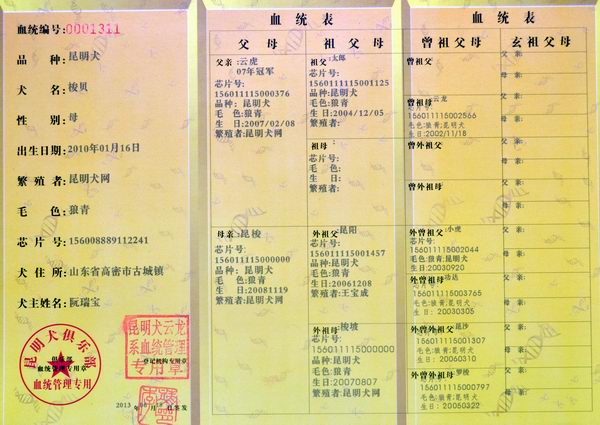 血统编号:0001311
品 种:昆明犬
犬 名:梭贝
性 别:母
出生日期:2010年01月16日
繁殖者:昆明犬网
毛 色:狼青
芯 片 号:156008889112241
犬 住 所:山东省高密市古城镇
犬主姓名:阮瑞宝
昆明犬俱乐部
俱乐部
血统管理专用章
血统管理专用
昆明犬云龙
系血统管理
专用章
登记机构专用章
血统表
父母
祖父母
父亲:云虎
07年冠军
芯片号:
156011115000376
品种:昆明犬
毛 色:狼青
生 日:2007/02/08
繁殖者:昆明犬网
祖父:太郎
芯片号:
156011115001125
品种:昆明犬
毛色:狼青
生 日:2004/12/05
繁殖者:
祖母:
芯片号:
毛 色:
生 日:
繁殖者:
母亲:昆梭
芯片号:
156011115000000
品种:昆明犬
毛 色:狼青
生 日:20081119
繁殖者:昆明犬网
外祖父:昆阳
芯片号:
156011115001457
品种:昆明犬
毛 色:狼青
生 日:20061208
繁殖者:王宝成
外祖母:梭坡
芯片号:
156011115000000
品种:昆明犬
毛 色:狼青
生 日:20070807
繁殖者:昆明犬网
血统表
曾祖父母
玄祖父母
曾祖父:
曾祖母:云龙
芯片号:
156011115002566
毛色:狼青:昆明犬
生日:2002/11/18
曾外祖父:
曾外祖母:
外曾祖父:小虎
芯片号:
156011115002044
毛色:狼青:昆明犬
生日:20030920
外曾祖母:
156011115003765
毛色:狼青:昆明犬
生日:20030305
外曾外祖父:昆沙
芯片号:
156011115001307
毛色:狼青:昆明犬
生日:20060310
外曾外祖母:罗梭
芯片号:
156011115000797
毛色:狼青:昆明犬
生日:20050322
父 亲:
母 亲:
父 亲:
母 亲:
父 亲:
母 亲:
父 亲:
母 亲:
父 亲:
母 亲:
父 亲:
母 亲:
父 亲:
母 亲:
父 亲:
母 亲: